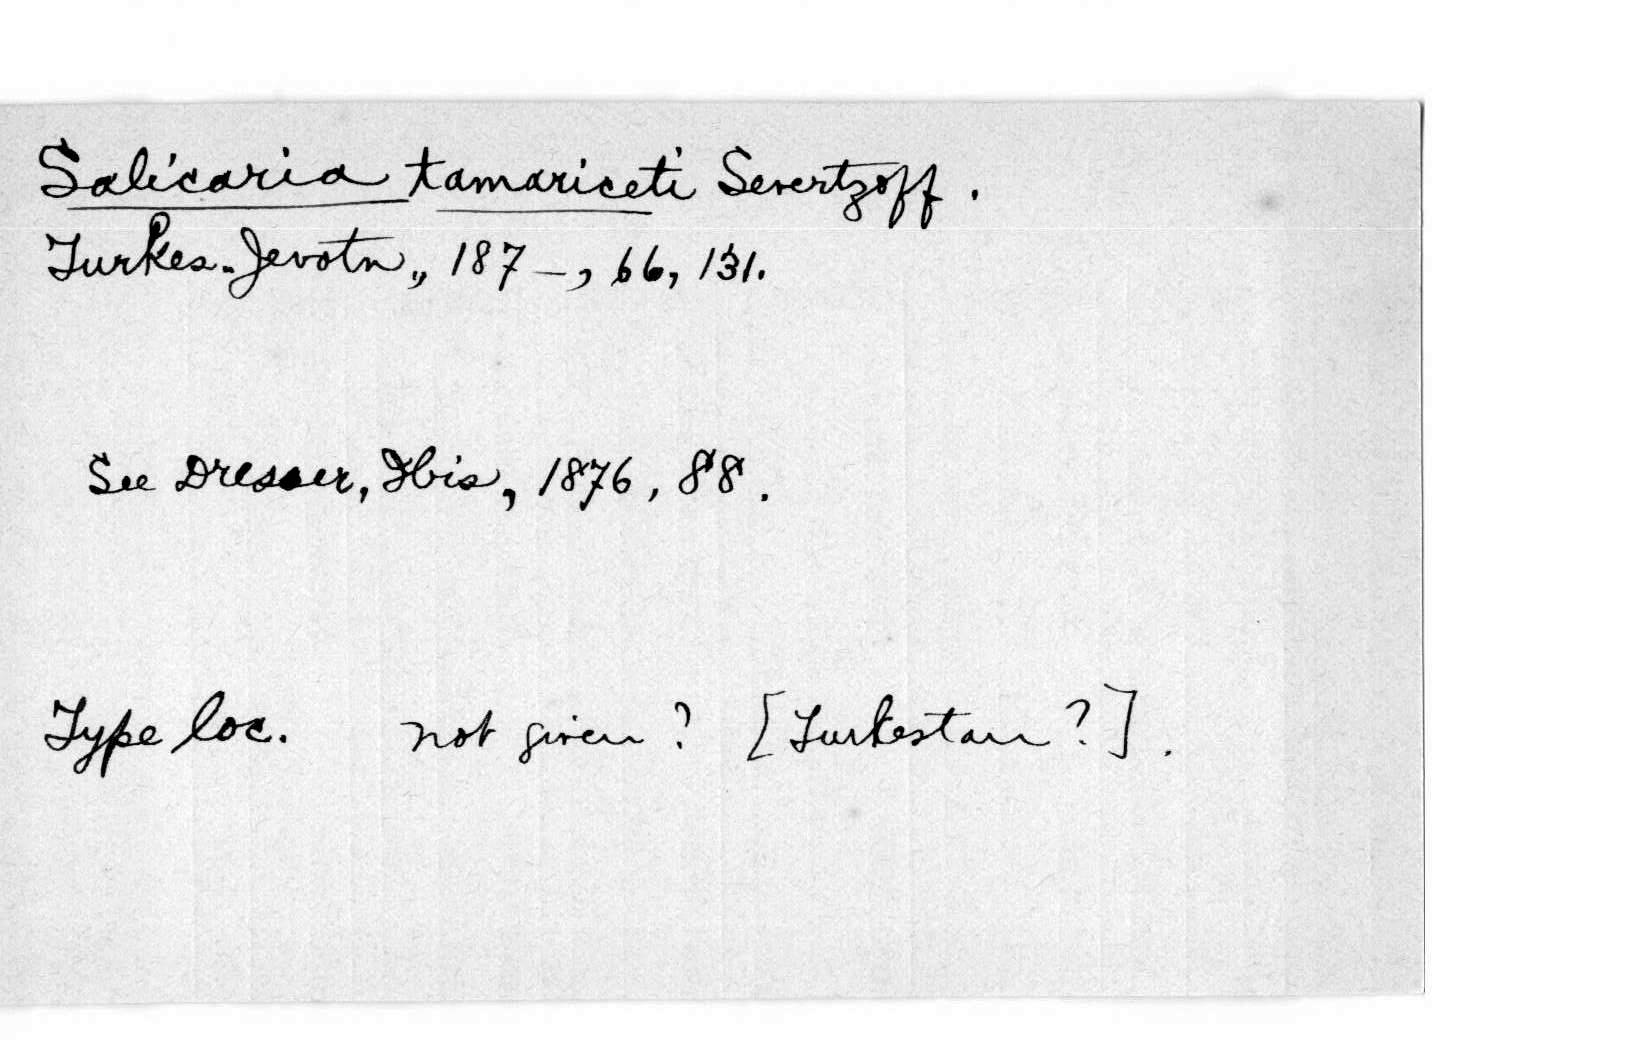 Salicaria tamariceti Severtzoff.
Turkes. Jevotn., 187–, 66, 131.
See Dresser, Ibis, 1876, 88.
Type loc. not given? [Turkestan?].